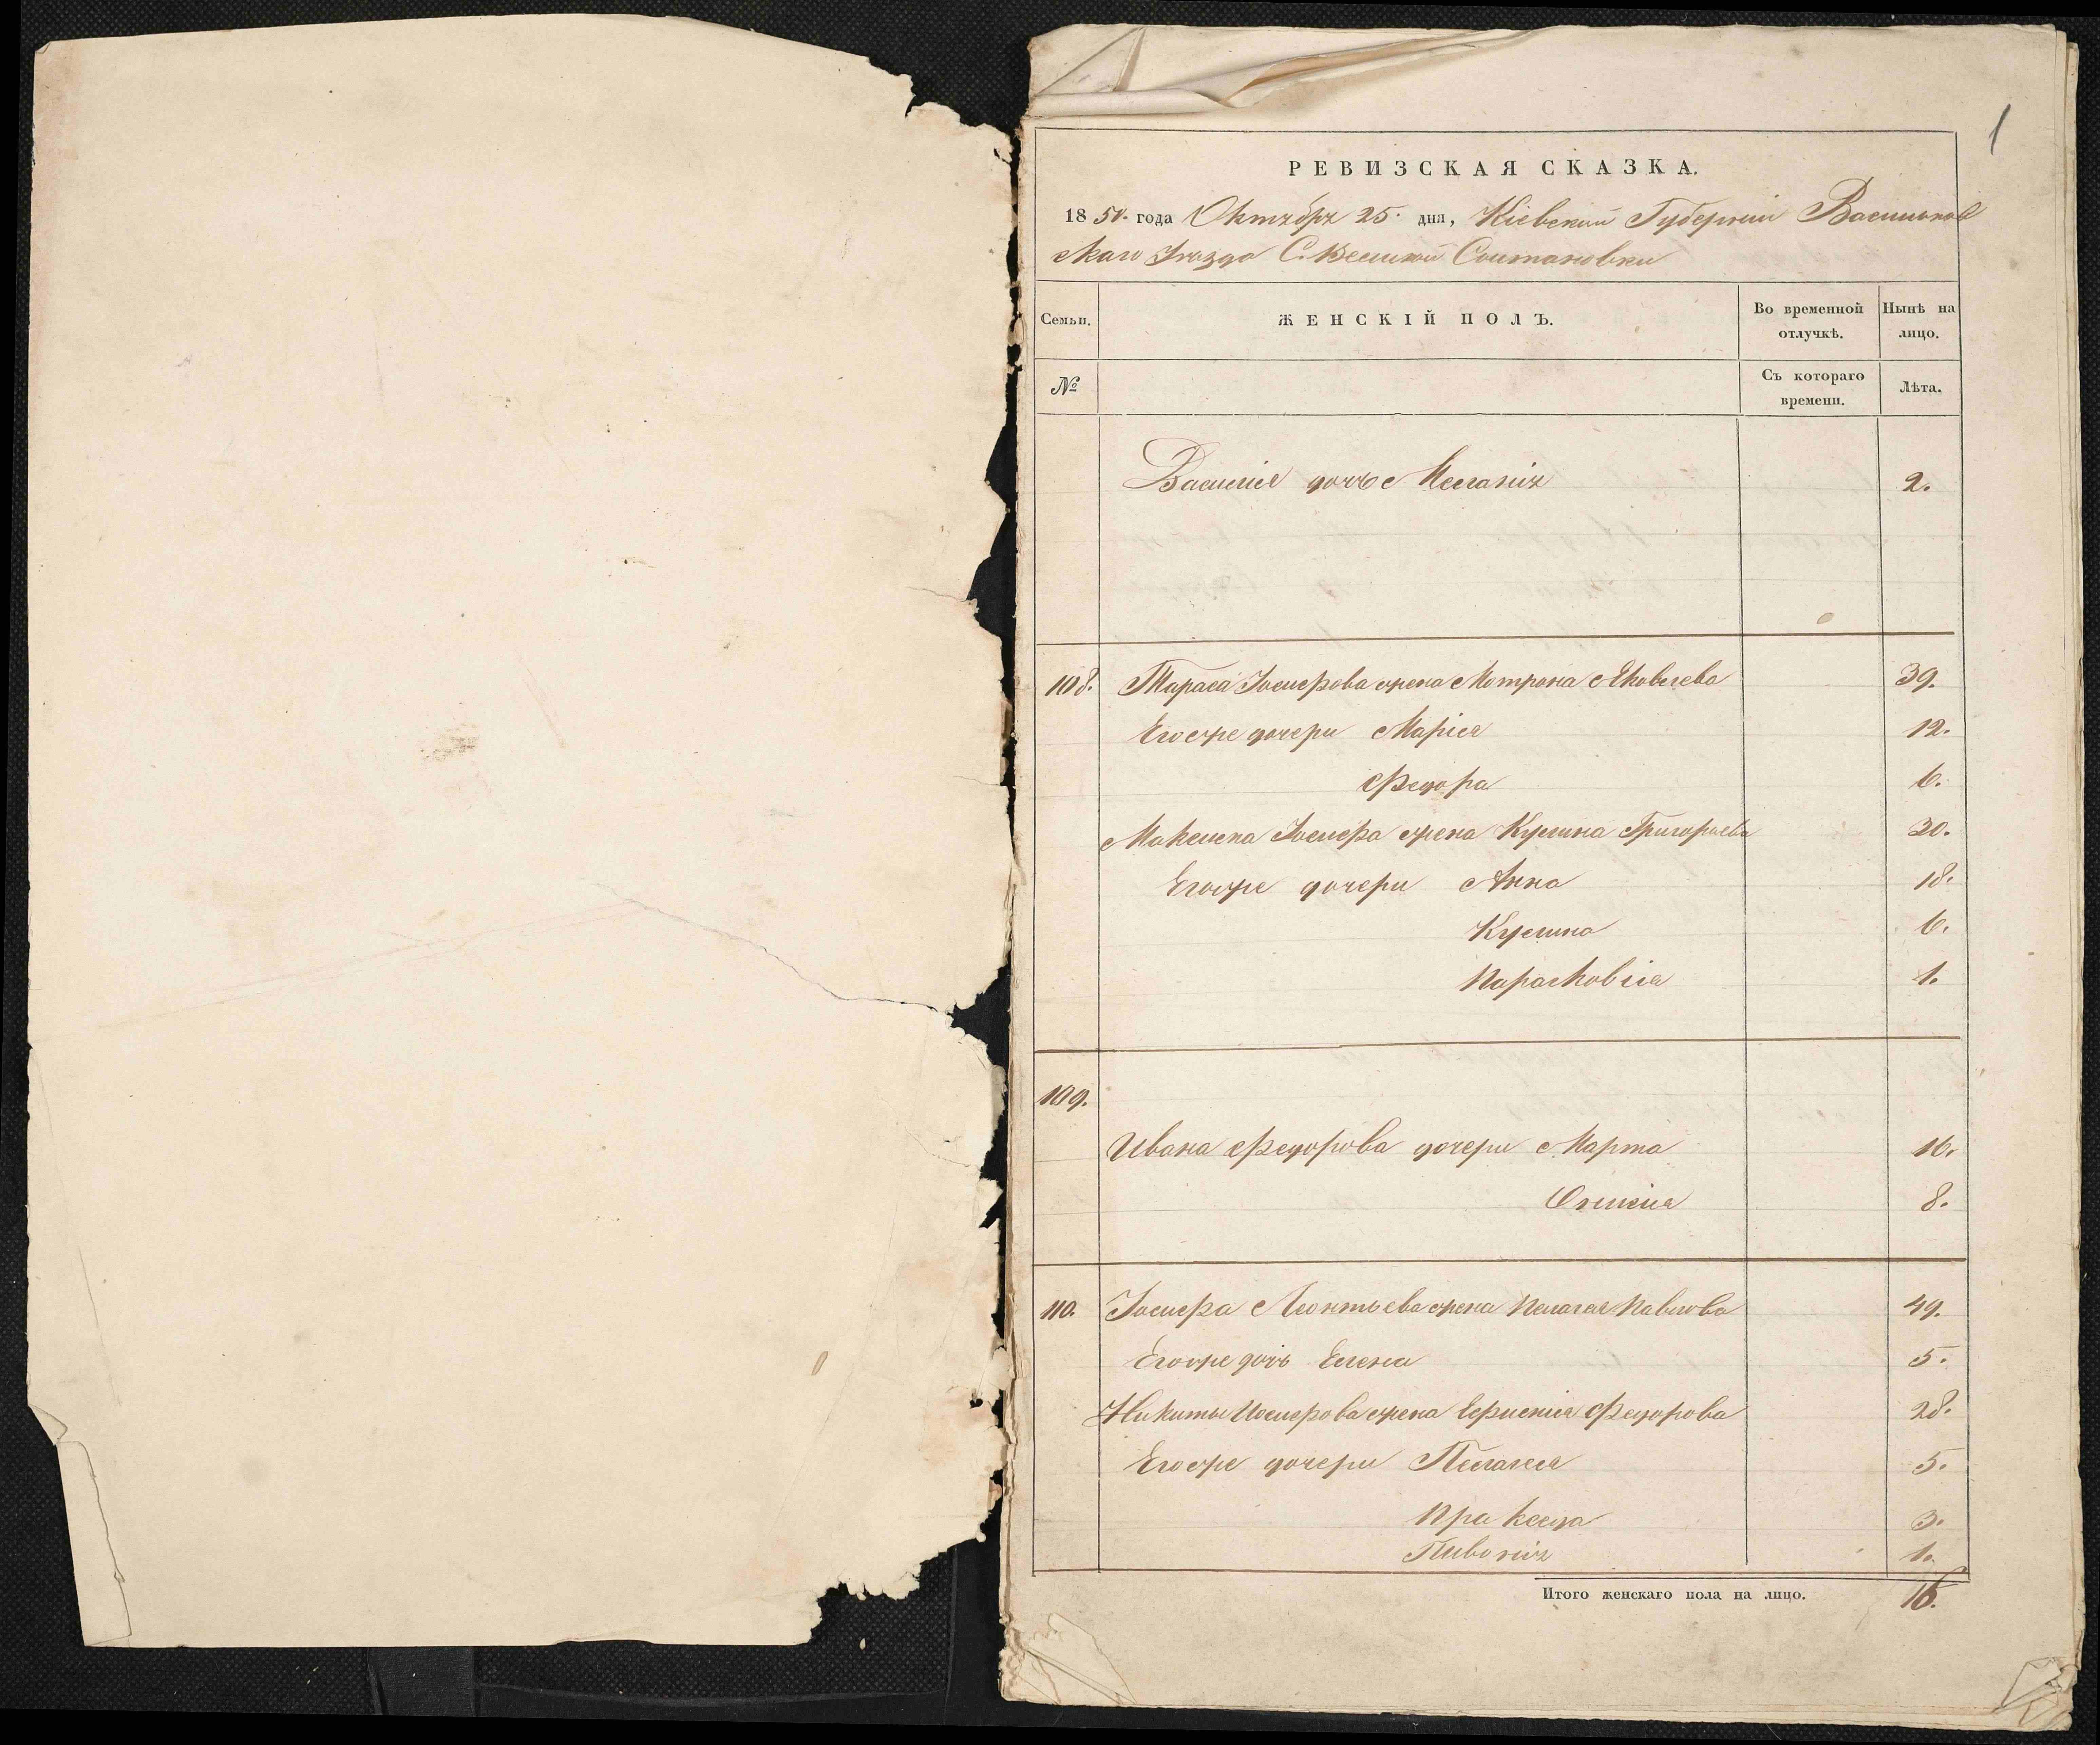 1
РЕВИЗСКАЯ СКАЗКА.
1850. года Октября 25. дня, Кіевской Губерніи Васильков
скаго Уезда С. Великой Солтановки
Семьи. ЖЕНСКІЙ ПОЛЪ. Во временной отлучкѣ. Нынѣ на лицо.
№ Съ котораго времени. Лѣта.
Василія дочь Меланія 2.
108. Тараса Іосифова жена Мотрона Яковлева 39.
Его же дочери Марія 12.
Федора 6.
Максима Іосифа жена Кулина Григорьева 30.
Его же дочери Анна 18.
Кулина 6.
Парасковія 1.
109.
Ивана Федорова дочери Марта 16.
Олимпія 8.
110. Іосифа Леонтьева жена Пелагея Павлова 49.
Его же дочь Елена 5.
Никиты Иосифова жена Ефимия Федорова 28.
Его же дочери Пелагея 5.
Пракседа 3.
1.
Итого женскаго пола на лицо. 16.